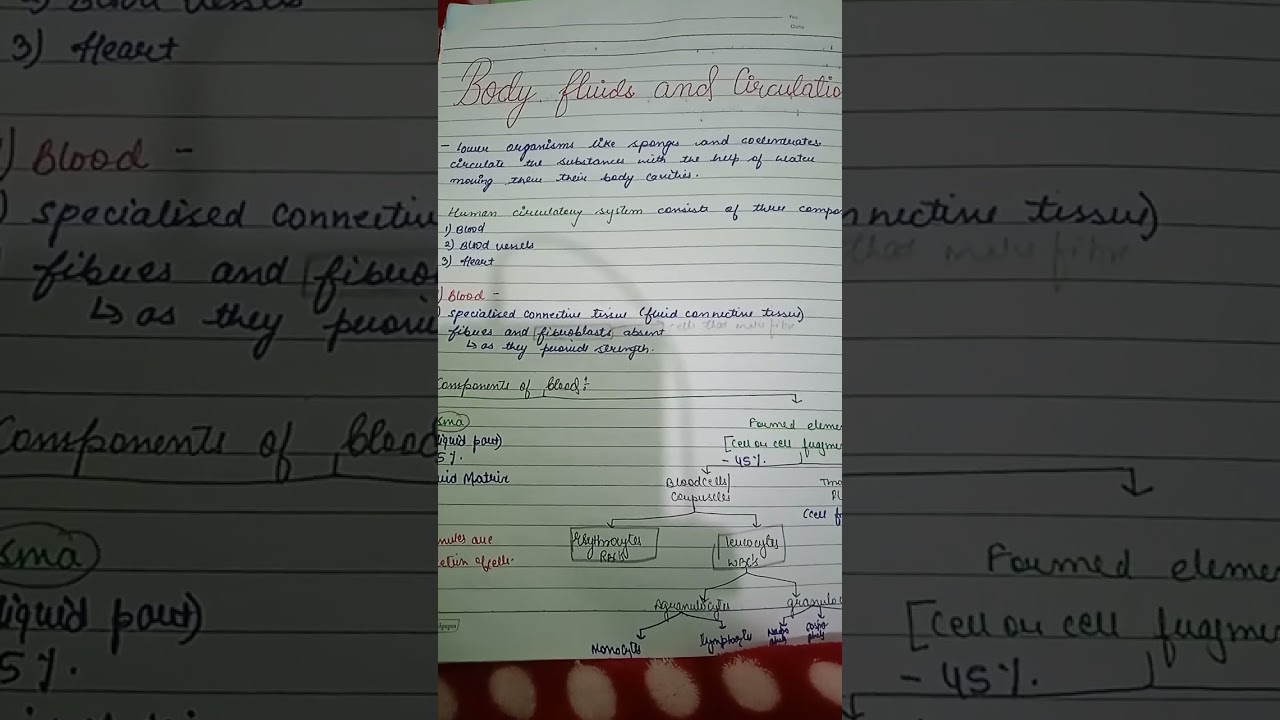 No
Date
Body fluids and Circulatio
- Lower organisms like sponges and coelenterates
circulate the substances with the help of water
moving there their body cavities.
Human circulatory system consists of three compo
1) Blood
2) Blood vessels
3) Heart
) Blood -
specialised connective tissue (fluid connective tissue)
fibres and fibroblasts absent cells that make fibre
↳ as they provide strength.
Components of blood:-
sma
liquid part)
5%.
uid Matrix
Formed eleme
[Cell or cell fragme
- 45%.
Blood cells/
Corpuscles
(Cell f
Erythrocytes
RBCs
Leucocytes
WBCs
nules are
etion of cells.
Agranulocytes
granuloc
Monocytes
lymphocytes